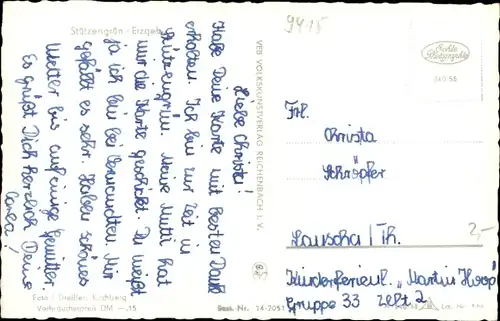 Stützengrün · Erzgeb.
Liebe Christa!
Habe Deine Karte mit besten Dank
erhalten. Ich bin zur Zeit in
Stützengrün. Meine Mutti hat
mir die Karte geschickt. Du weißt
ja ich bin bei Verwandten. Mir
gefällt es sehr. Haben schönes
Wetter bis auf einige Gewitter.
Es grüßt Dich herzlich Deine
Carla!
Foto: Dreißler, Kirchberg
Verbraucherpreis DM —,15
VEB VOLKSKUNSTVERLAG REICHENBACH I. V.
Best. Nr. 14-2051
9415
Echte
Photographie
340 58
Frl.
Christa
Schröpfer
Lauscha/Th.
2,-
Kinderferienl. „Martin Hoop"
Gruppe 33 Zelt 2